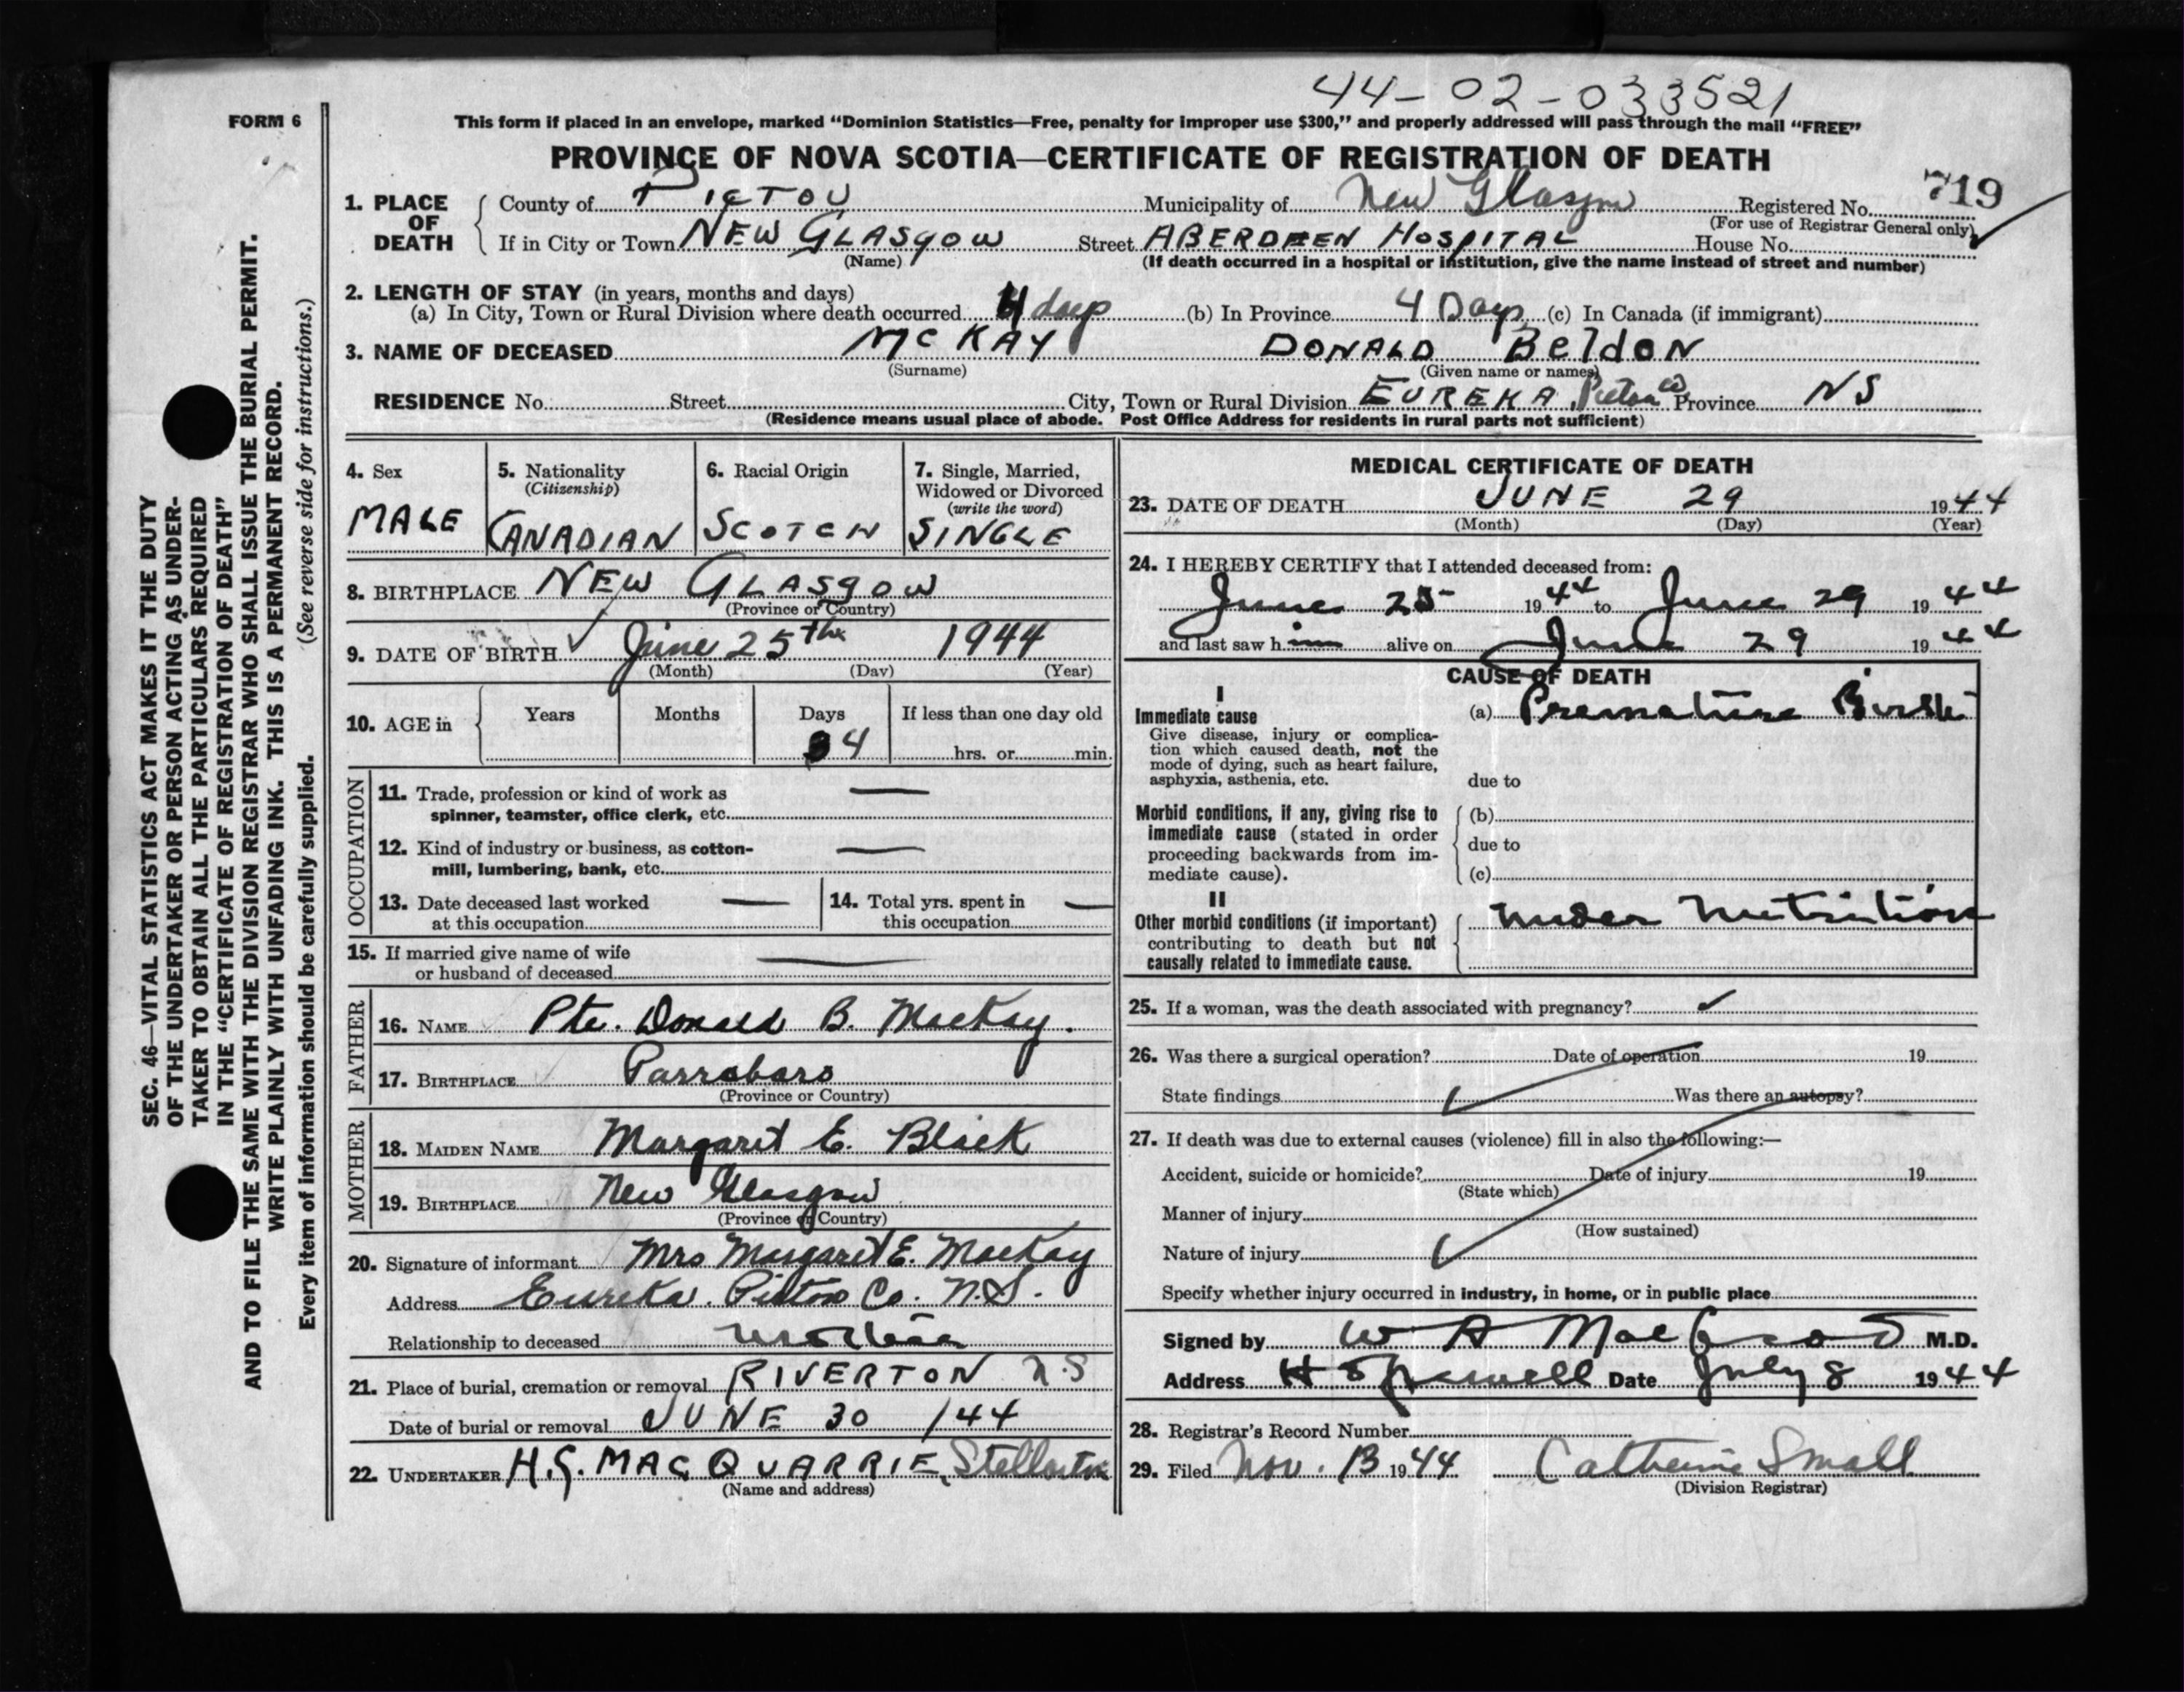 44-02-033521
FORM 6
This form if placed in an envelope, marked "Dominion Statistics—Free, penalty for improper use $300," and properly addressed will pass through the mail "FREE"
PROVINCE OF NOVA SCOTIA—CERTIFICATE OF REGISTRATION OF DEATH
719
1. PLACE OF DEATH
County of PICTOU Municipality of New Glasgow Registered No.
(For use of Registrar General only)
If in City or Town NEW GLASGOW Street ABERDEEN HOSPITAL House No.
(Name) (If death occurred in a hospital or institution, give the name instead of street and number)
2. LENGTH OF STAY (in years, months and days)
(a) In City, Town or Rural Division where death occurred 4 days (b) In Province 4 Days (c) In Canada (if immigrant)
3. NAME OF DECEASED McKAY DONALD BeldoN
(Surname) (Given name or names)
RESIDENCE No. Street City, Town or Rural Division EUREKA, Pictou Co Province NS
(Residence means usual place of abode. Post Office Address for residents in rural parts not sufficient)
4. Sex
MALE
5. Nationality
(Citizenship)
CANADIAN
6. Racial Origin
SCOTCH
7. Single, Married,
Widowed or Divorced
(write the word)
SINGLE
8. BIRTHPLACE NEW GLASGOW
(Province or Country)
9. DATE OF BIRTH June 25th 1944
(Month) (Day) (Year)
10. AGE in Years Months Days If less than one day old
4 hrs. or min.
OCCUPATION
11. Trade, profession or kind of work as
spinner, teamster, office clerk, etc. —
12. Kind of industry or business, as cotton-
mill, lumbering, bank, etc. —
13. Date deceased last worked
at this occupation —
14. Total yrs. spent in
this occupation —
15. If married give name of wife
or husband of deceased —
FATHER
16. NAME Pte. Donald B. MacKay.
17. BIRTHPLACE Parrsboro
(Province or Country)
MOTHER
18. MAIDEN NAME Margaret E. Black
19. BIRTHPLACE New Glasgow
(Province or Country)
20. Signature of informant Mrs Margaret E. MacKay
Address Eureka. Pictou Co. N.S.
Relationship to deceased mother
21. Place of burial, cremation or removal RIVERTON N.S
Date of burial or removal JUNE 30 /44
22. UNDERTAKER H.G. MACQUARRIE, Stellarton
(Name and address)
MEDICAL CERTIFICATE OF DEATH
23. DATE OF DEATH JUNE 29 1944
(Month) (Day) (Year)
24. I HEREBY CERTIFY that I attended deceased from:
June 25 1944 to June 29 1944
and last saw him alive on June 29 1944
CAUSE OF DEATH
I
Immediate cause
Give disease, injury or complica-
tion which caused death, not the
mode of dying, such as heart failure,
asphyxia, asthenia, etc.
(a) Premature Birth
due to
Morbid conditions, if any, giving rise to
immediate cause (stated in order
proceeding backwards from im-
mediate cause).
(b)
due to
(c)
II
Other morbid conditions (if important)
contributing to death but not
causally related to immediate cause.
under nutrition
25. If a woman, was the death associated with pregnancy?
26. Was there a surgical operation? Date of operation 19
State findings Was there an autopsy?
27. If death was due to external causes (violence) fill in also the following:—
Accident, suicide or homicide? Date of injury 19
(State which)
Manner of injury
(How sustained)
Nature of injury
Specify whether injury occurred in industry, in home, or in public place
Signed by W A M.D.
Address Date July 8 1944
28. Registrar's Record Number
29. Filed Nov. 13 1944 Catherine Small
(Division Registrar)
SEC. 46—VITAL STATISTICS ACT MAKES IT THE DUTY
OF THE UNDERTAKER OR PERSON ACTING AS UNDER-
TAKER TO OBTAIN ALL THE PARTICULARS REQUIRED
IN THE "CERTIFICATE OF REGISTRATION OF DEATH"
AND TO FILE THE SAME WITH THE DIVISION REGISTRAR WHO SHALL ISSUE THE BURIAL PERMIT.
WRITE PLAINLY WITH UNFADING INK. THIS IS A PERMANENT RECORD.
Every item of information should be carefully supplied. (See reverse side for instructions.)